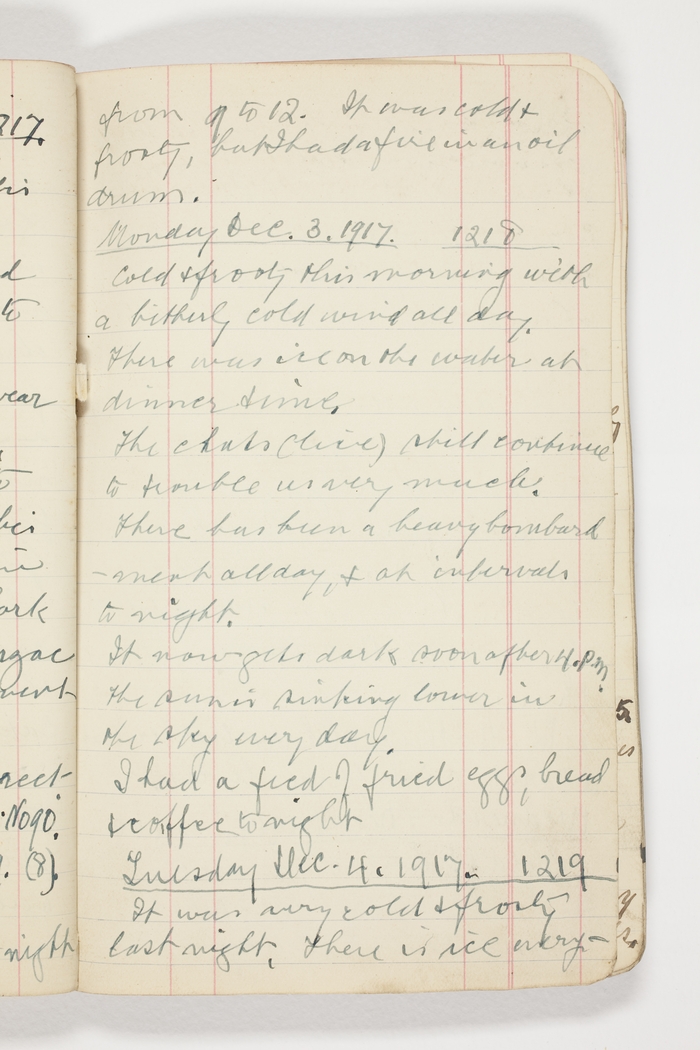 from 9 to 12. It was cold &
frosty, but I had a fire in an oil
drum.
Monday Dec. 3. 1917. 1218
Cold & frosty this morning with
a bitterly cold wind all day.
There was ice on the water at
dinner time.
The chats (lice) still continue
to trouble us very much.
There has been a heavy bombard
-ment all day, & at intervals
to night.
It now gets dark soon after 4.p.m.
the sun is sinking lower in
the sky every day
I had a feed of fried eggs, bread
& coffee to night
Tuesday Dec. 4. 1917. 1219
It was very cold & frosty
last night. There is ice every-
217.
d
to
wear
ork
rect-
No90.
(8).
night